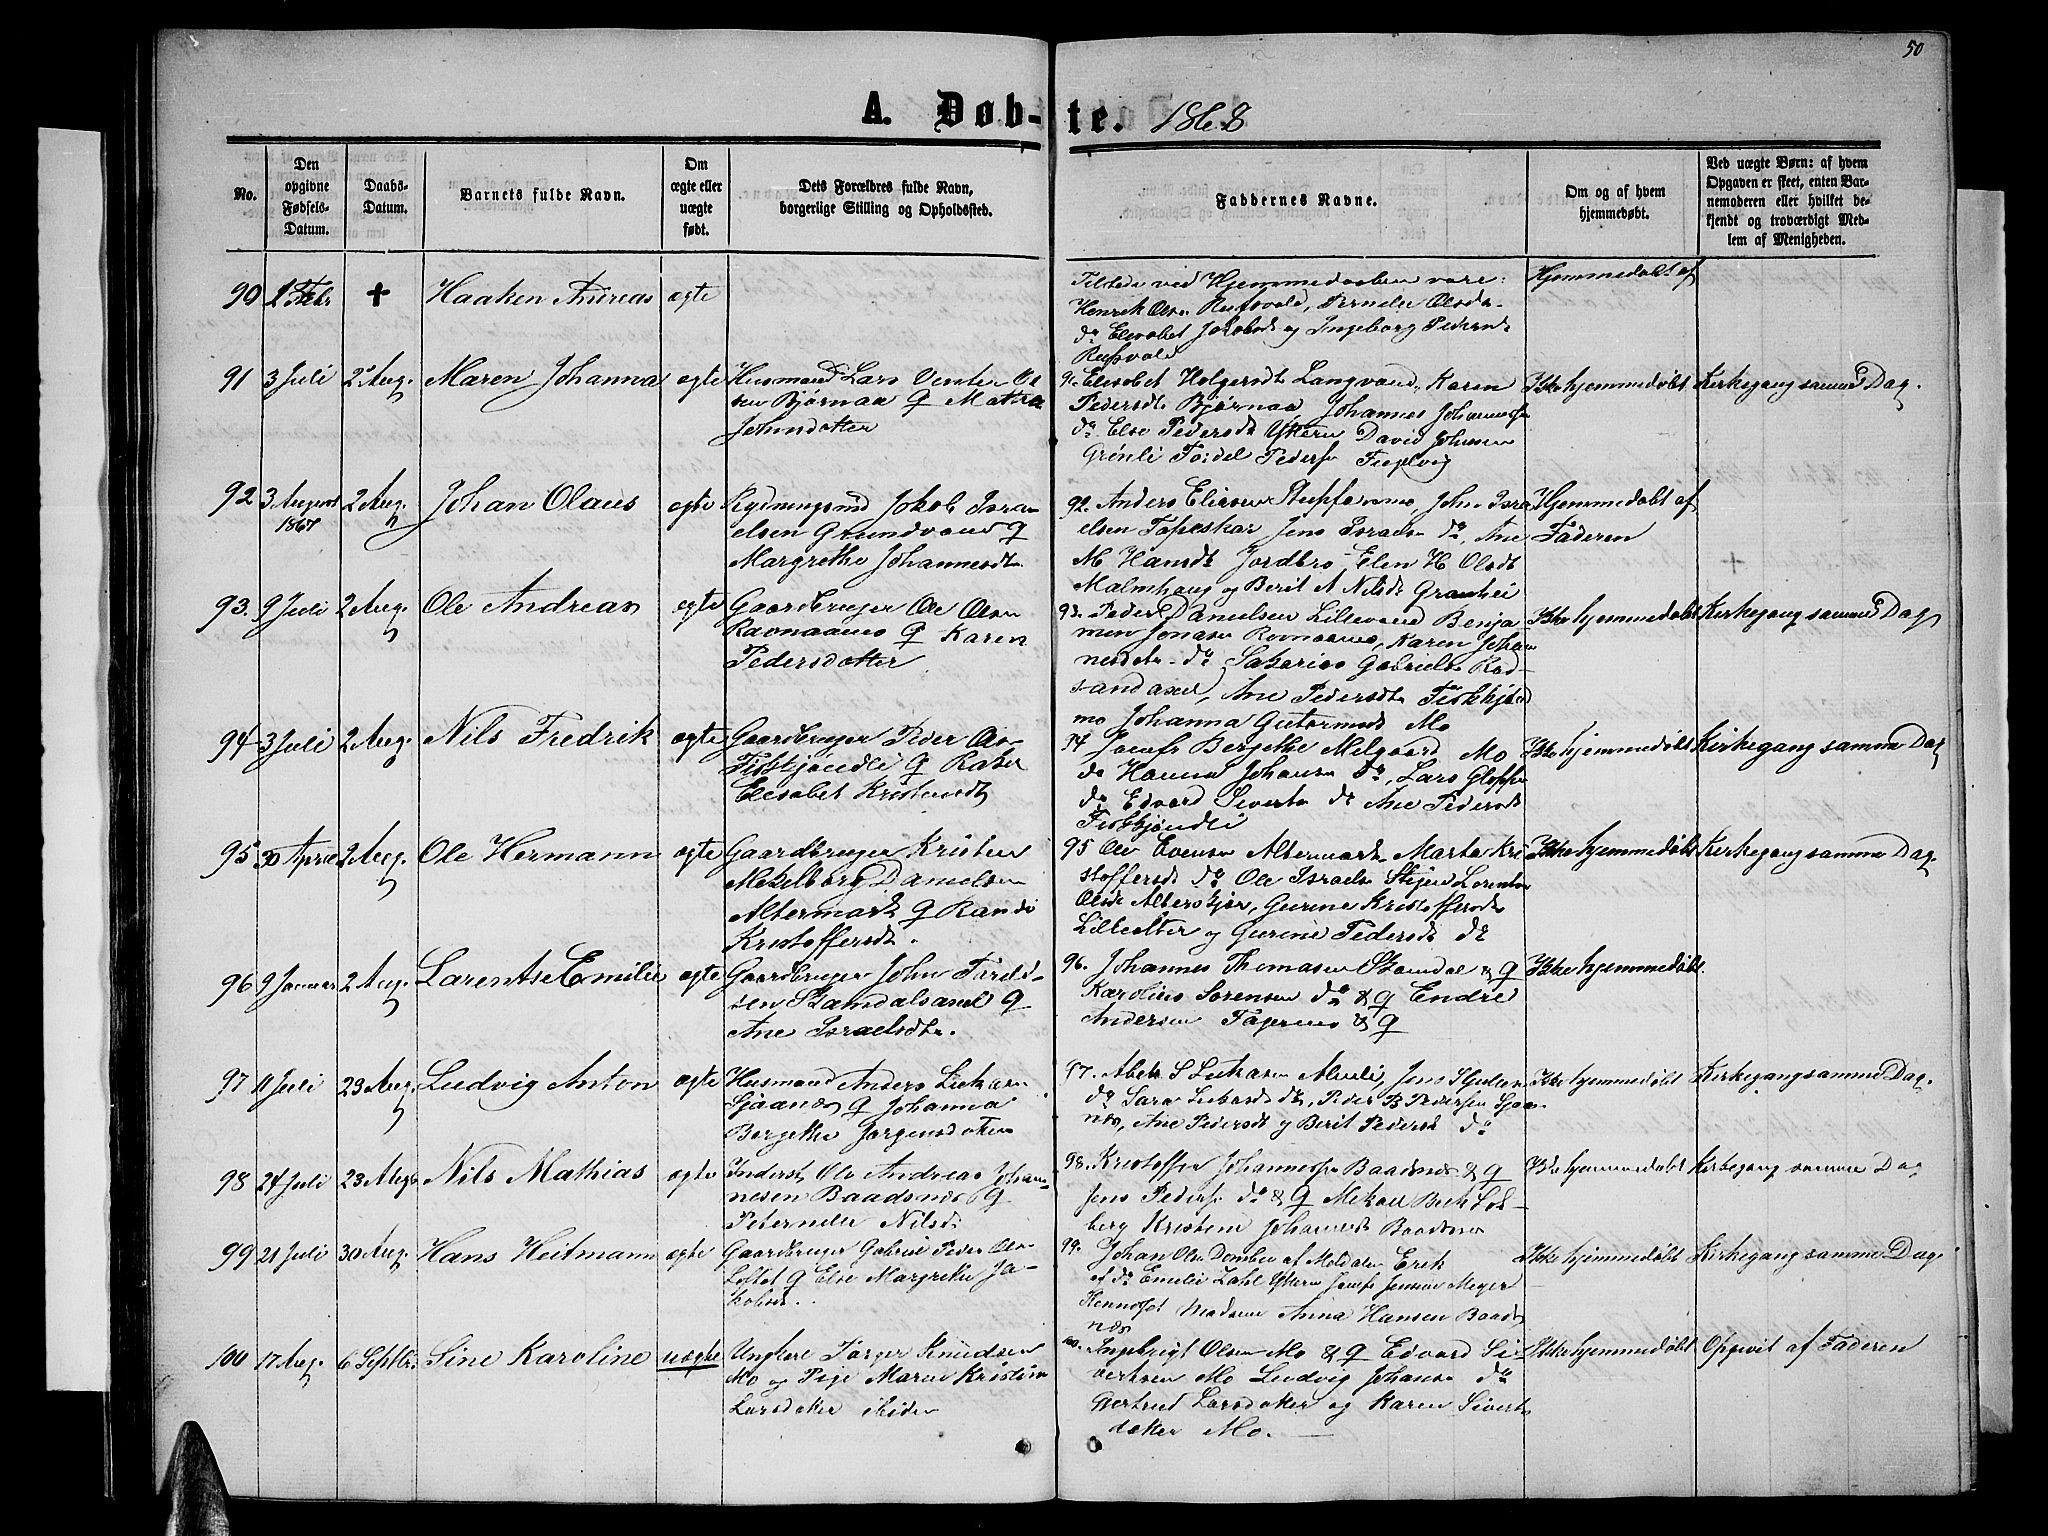 50
A. Døb-te. 1868
No.
Den opgivne Fødsels-Datum.
Daabs-Datum.
Barnets fulde Navn.
Om ægte eller uægte født.
Dets Forældres fulde Navn, borgerlige Stilling og Opholdssted.
Faddernes Navne.
Om og af hvem hjemmedøbt.
Ved uægte Børn: af hvem Opgaven er skeet, enten Barnemoderen eller hvilket bekjendt og troværdigt Medlem af Menigheden.
90 Febr + Haaken Andreas ægte
Tilstede ved Hjemmedaaben vare:
Henrik Olsen
do Elisabet Jakobsdt og Ingeborg Pedersdt
Hjemmedøbt af
91 3 Juli 2 Aug. Maren Johanna ægte
Husmand Lars Ol
sen Bjørnaa &
Johnsdotter
91. Elisabet Holgersdt Langvand, Karen
Pedersdt Bjørnaa Johannes
do Else Pedersdt Yttern David Johnsen
Grönli Pedersen
Ikke hjemmedøbt Kirkegang samme Dag.
92 3 August 1867 2 Aug. Johan Olaus ægte
Rydningsmd Jakob Isra
elsen Grundvand &
Margrethe Johannesdt.
92. Anders Eliassen John Isra
elsen Tapeskar Jens Israels do, Ane
M Hansdt Jordbro, Elen H Olsdt
Malmhaug og Berit A Nilsdt Grönhei
Hjemmedøbt af
Faderen
+
93. 9 Juli 2 Aug. Ole Andrean ægte
Gaardbruger Ole Olsen
Ravnaanes & Karen
Pedersdotter
93. Peder Danielsen Lillevand Benja-
min Jonasen Ravnaanes, Karen Johan
nesdtr do Sakarias Gabriels
Ane Pedersdt
mo Johanna Gutormsdt Mo
Ikke hjemmedøbt Kirkegang samme Dag
94 3 Juli 2 Aug. Nils Fredrik ægte
Gaardbruger Peder Ols
&
Elesabet Kristensdt
94 Josefs Bergithe Melgaard Mo
do Hanna Johansen do, Lars
do Edvard Sivertsn do Ane Pedersdt
Ikke hjemmedøbt Kirkegang samme Dag
95 30 April 2 Aug. Ole Hermann ægte
Gaardbruger Kristen
Danielsen
Altermark & Randi
Kristoffersdt.
95 Ole Evensen Altermark Marta Kri
stoffersdt do Ole Israels
Olsdt Gurine Kristoffersdt
Lillealter og Gurine Pedersdt do
Ikke hjemmedøbt Kirkegang samme Dag.
96 9 Januar 2 Aug. Larentse Emilie ægte
Gaardbruger John
sen &
Ane Israelsdt.
96. Johannes Thomasen & &
Karolius Sörensen do & & Endre
Andersen & &
Ikke hjemmedøbt
97 11 Juli 23 Aug. Ludvig Anton ægte
Husmand Anders Lukasen
Sjaanes & Johanna
Bergithe Jørgensdotter
97. S Lukasen Jens
do Sara Lukasdt do, Peder B Pedersen Sjaa
nes, Ane Pedersdt og Berit Pedersdt do
Ikke hjemmedøbt Kirkegang samme Dag.
98 24 Juli 23 Aug. Nils Mathias ægte
Inderst Ole Andreas Johan-
nesen Baadsnes &
Peternelle Nilsdt
98. Kristoffer Johannesen Baadsnes & &
Jens Pedersen do & & Mekael
berg Kristine Johannesdt Baadsnes
Ikke hjemmedøbt Kirkegang samme Dag
99 21 Juli 30 Aug. Hans Heitmann ægte
Gaardbruger Gabriel Peder Ols
Loftet & Else Margrethe Ja-
kobsdt.
99. Johan Olsen af
af do Emelie Zahl Yttern Josefs Jensen Meyer
Madsen Anna Hansen Baads
nes
Ikke hjemmedøbt Kirkegang samme Dag
100 17 Aug. 6 Septbr. Sine Karoline uægte
Ungkarl Jørger Knudsen
Mo og Pige Maren Kristine
Larsdatter ibiden
100. Ingebrigt Olsen Mo & & Edvard Si-
vertsen Mo Ludvig Johansen do
Gertrud Larsdatter og Karen Siverts
datter Mo.
Ikke hjemmedøbt Opgivit af Faderen